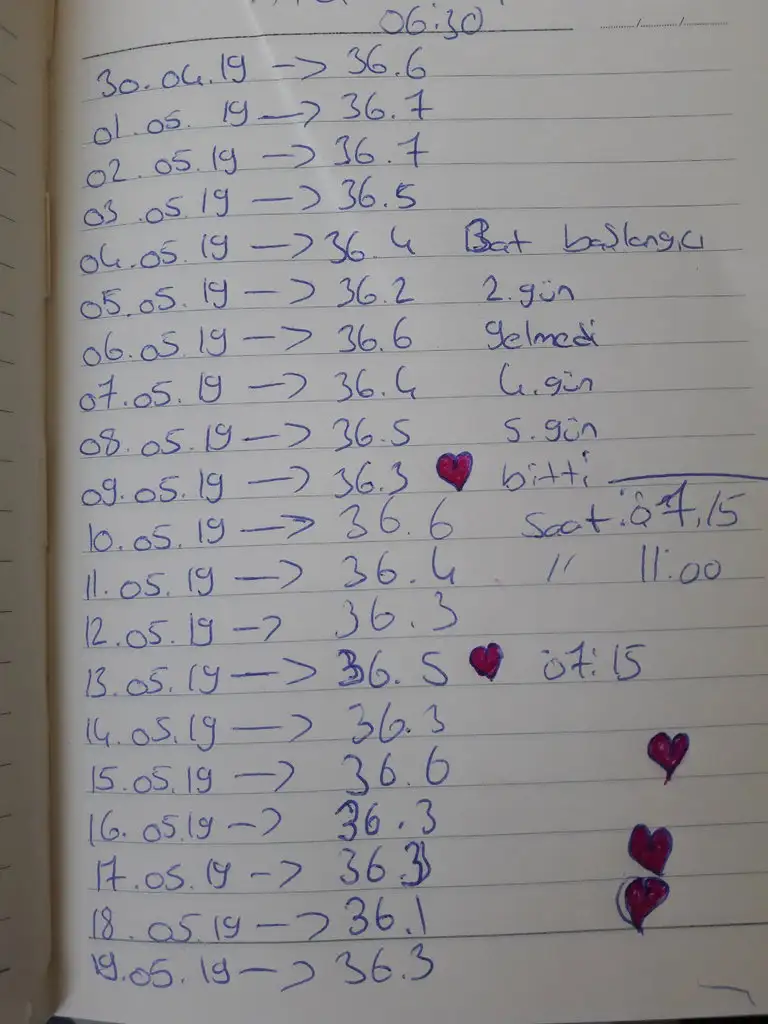 06:30
30.04.19 —> 36.6
01.05.19 —> 36.7
02.05.19 —> 36.7
03.05.19 —> 36.5
04.05.19 —> 36.4 Bat başlangıcı
05.05.19 —> 36.2 2.gün
06.05.19 —> 36.6 gelmedi
07.05.19 —> 36.4 4.gün
08.05.19 —> 36.5 5.gün
09.05.19 —> 36.3 bitti
10.05.19 —> 36.6 Saat: 07.15
11.05.19 —> 36.4 " 11:00
12.05.19 —> 36.3
13.05.19 —> 36.5 07:15
14.05.19 —> 36.3
15.05.19 —> 36.6
16.05.19 —> 36.3
17.05.19 —> 36.3
18.05.19 —> 36.1
19.05.19 —> 36.3